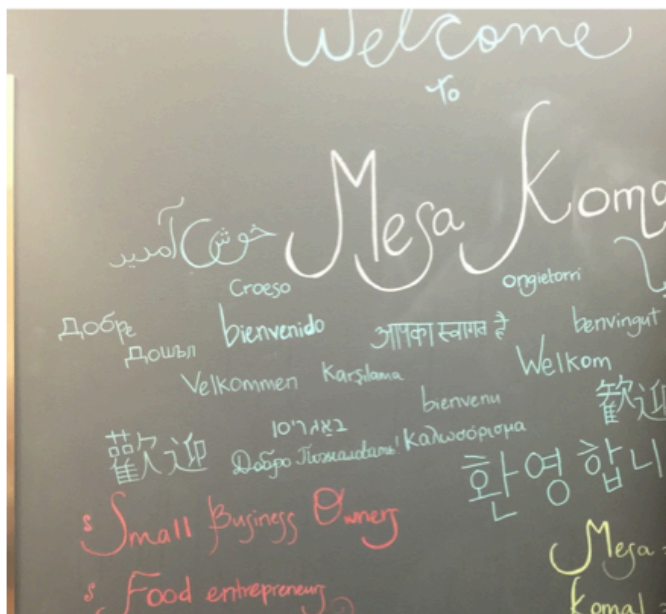 Welcome
To
Mesa Koma
خوش آمدید
Croeso
ongietorri
Добре
Дошъл
bienvenido
आपका स्वागत है
benvingut
Velkommen
Karşılama
Welkom
bienvenu
歡迎
באַגריסן
Добро Пожаловать!
Καλωσόρισμα
歡迎
환영합니
s Small Business Owners
s Food entrepreneurs
Mesa =
Komal